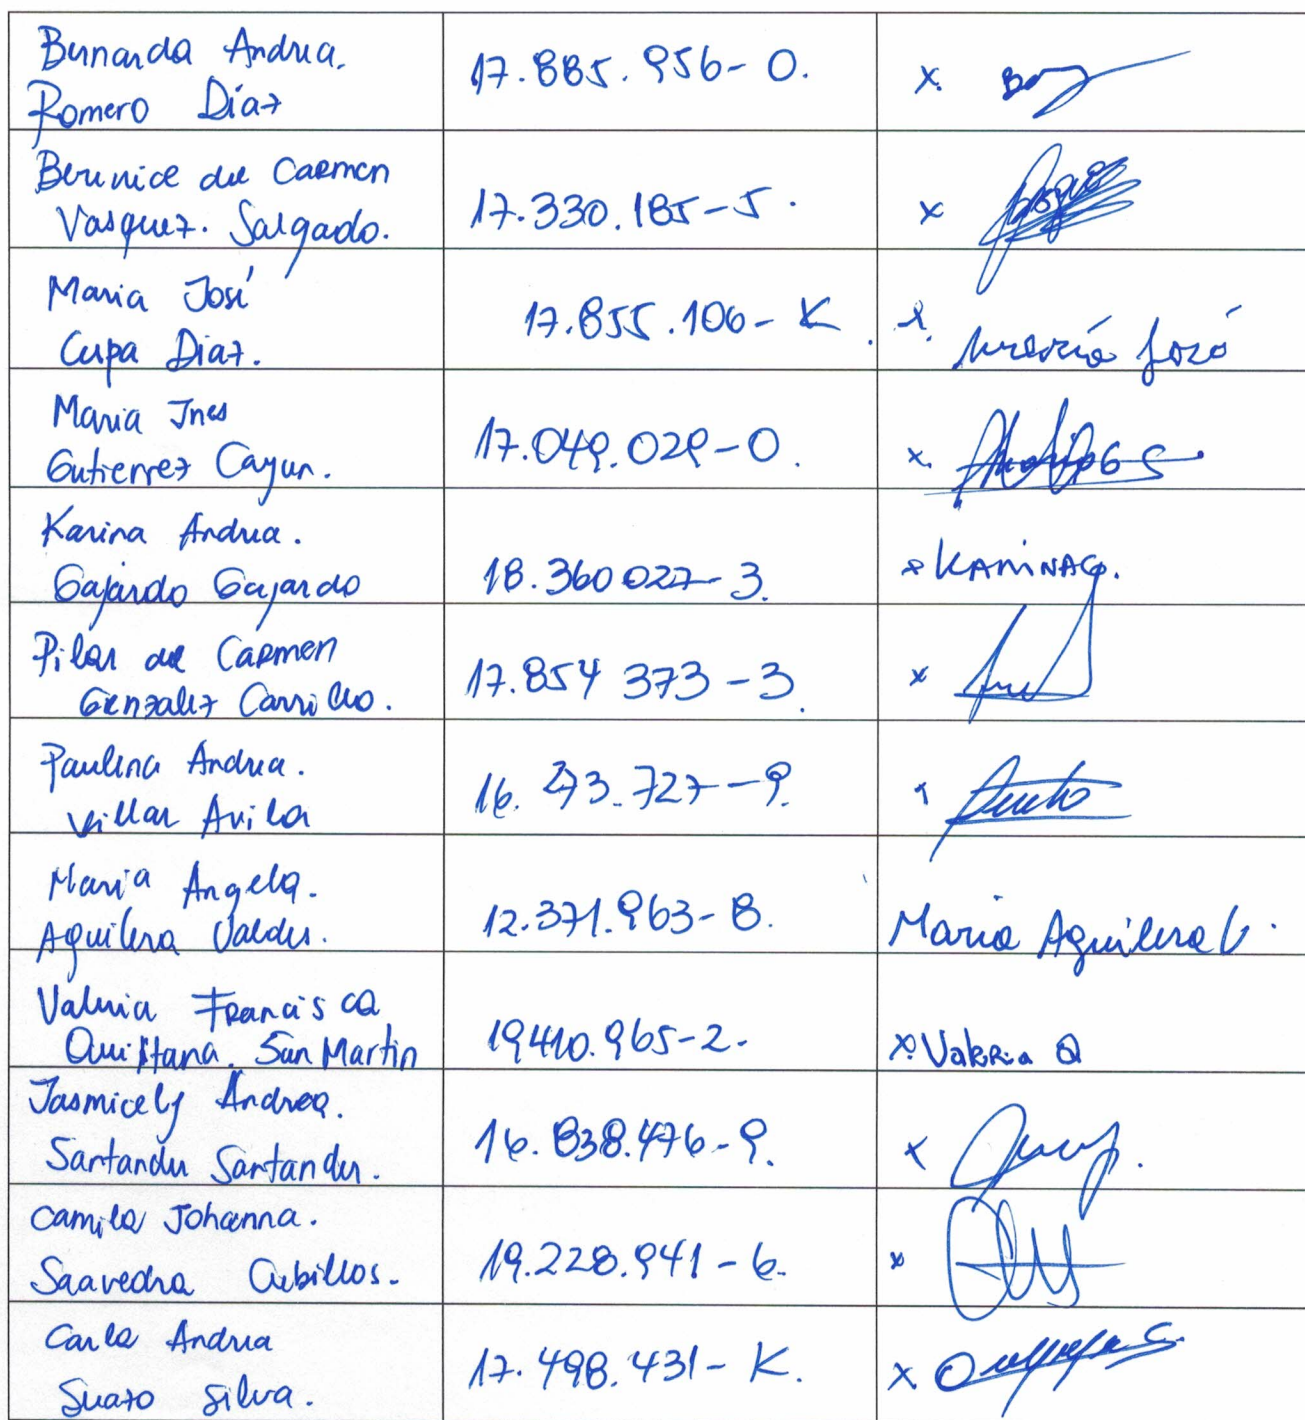 Bernarda Andrea.
Romero Díaz
17.885.956-0.
x.
Berenice del Carmen
Vasquez. Salgado.
17.330.185-5.
x
Maria José
Cupa Diaz.
17.855.106-K
María José
Maria Ines
Gutierrez Cayun.
17.049.029-0.
x.
Karina Andrea.
Gajardo Gajardo
18.360027-3.
x KARINAG.
Pilar del Carmen
Gonzalez Carrillo.
17.854 373-3
x
Paulina Andrea.
Villar Avila
727-9.
Maria Angela.
Aguilera Valdes.
12.371.963-8.
Maria Aguilera V.
Valeria Francisca
Quiltana. San Martin
19410.965-2.
x. Valeria Q
Jasmicely Andrea.
Santander Santander.
16.838.476-9.
x
Camila Johanna.
Saavedra Cubillos.
19.228.941-6.
x
Carla Andrea
Suazo Silva.
17.498.431-K.
x